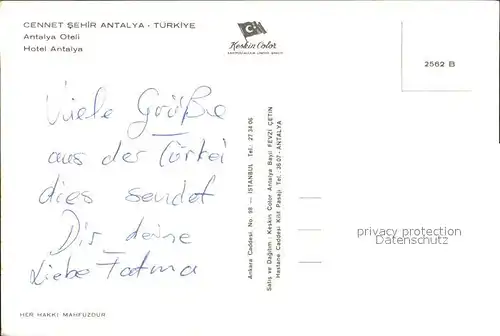 CENNET ŞEHİR ANTALYA - TÜRKİYE
Antalya Oteli
Hotel Antalya
Keskin Color
2562 B
Viele Grüße
aus der Türkei
dies sendet
Dir deine
Liebe Fatma
Ankara Caddesi No. 98 — İSTANBUL Tel.: 27 34 06
Satış ve Dağıtım : Keskin Color Antalya Bayii FEVZİ ÇETİN
Hastane Caddesi Kilit Pasajı Tel. 35 07 - ANTALYA
privacy protection
watermark
HER HAKKI MAHFUZDUR